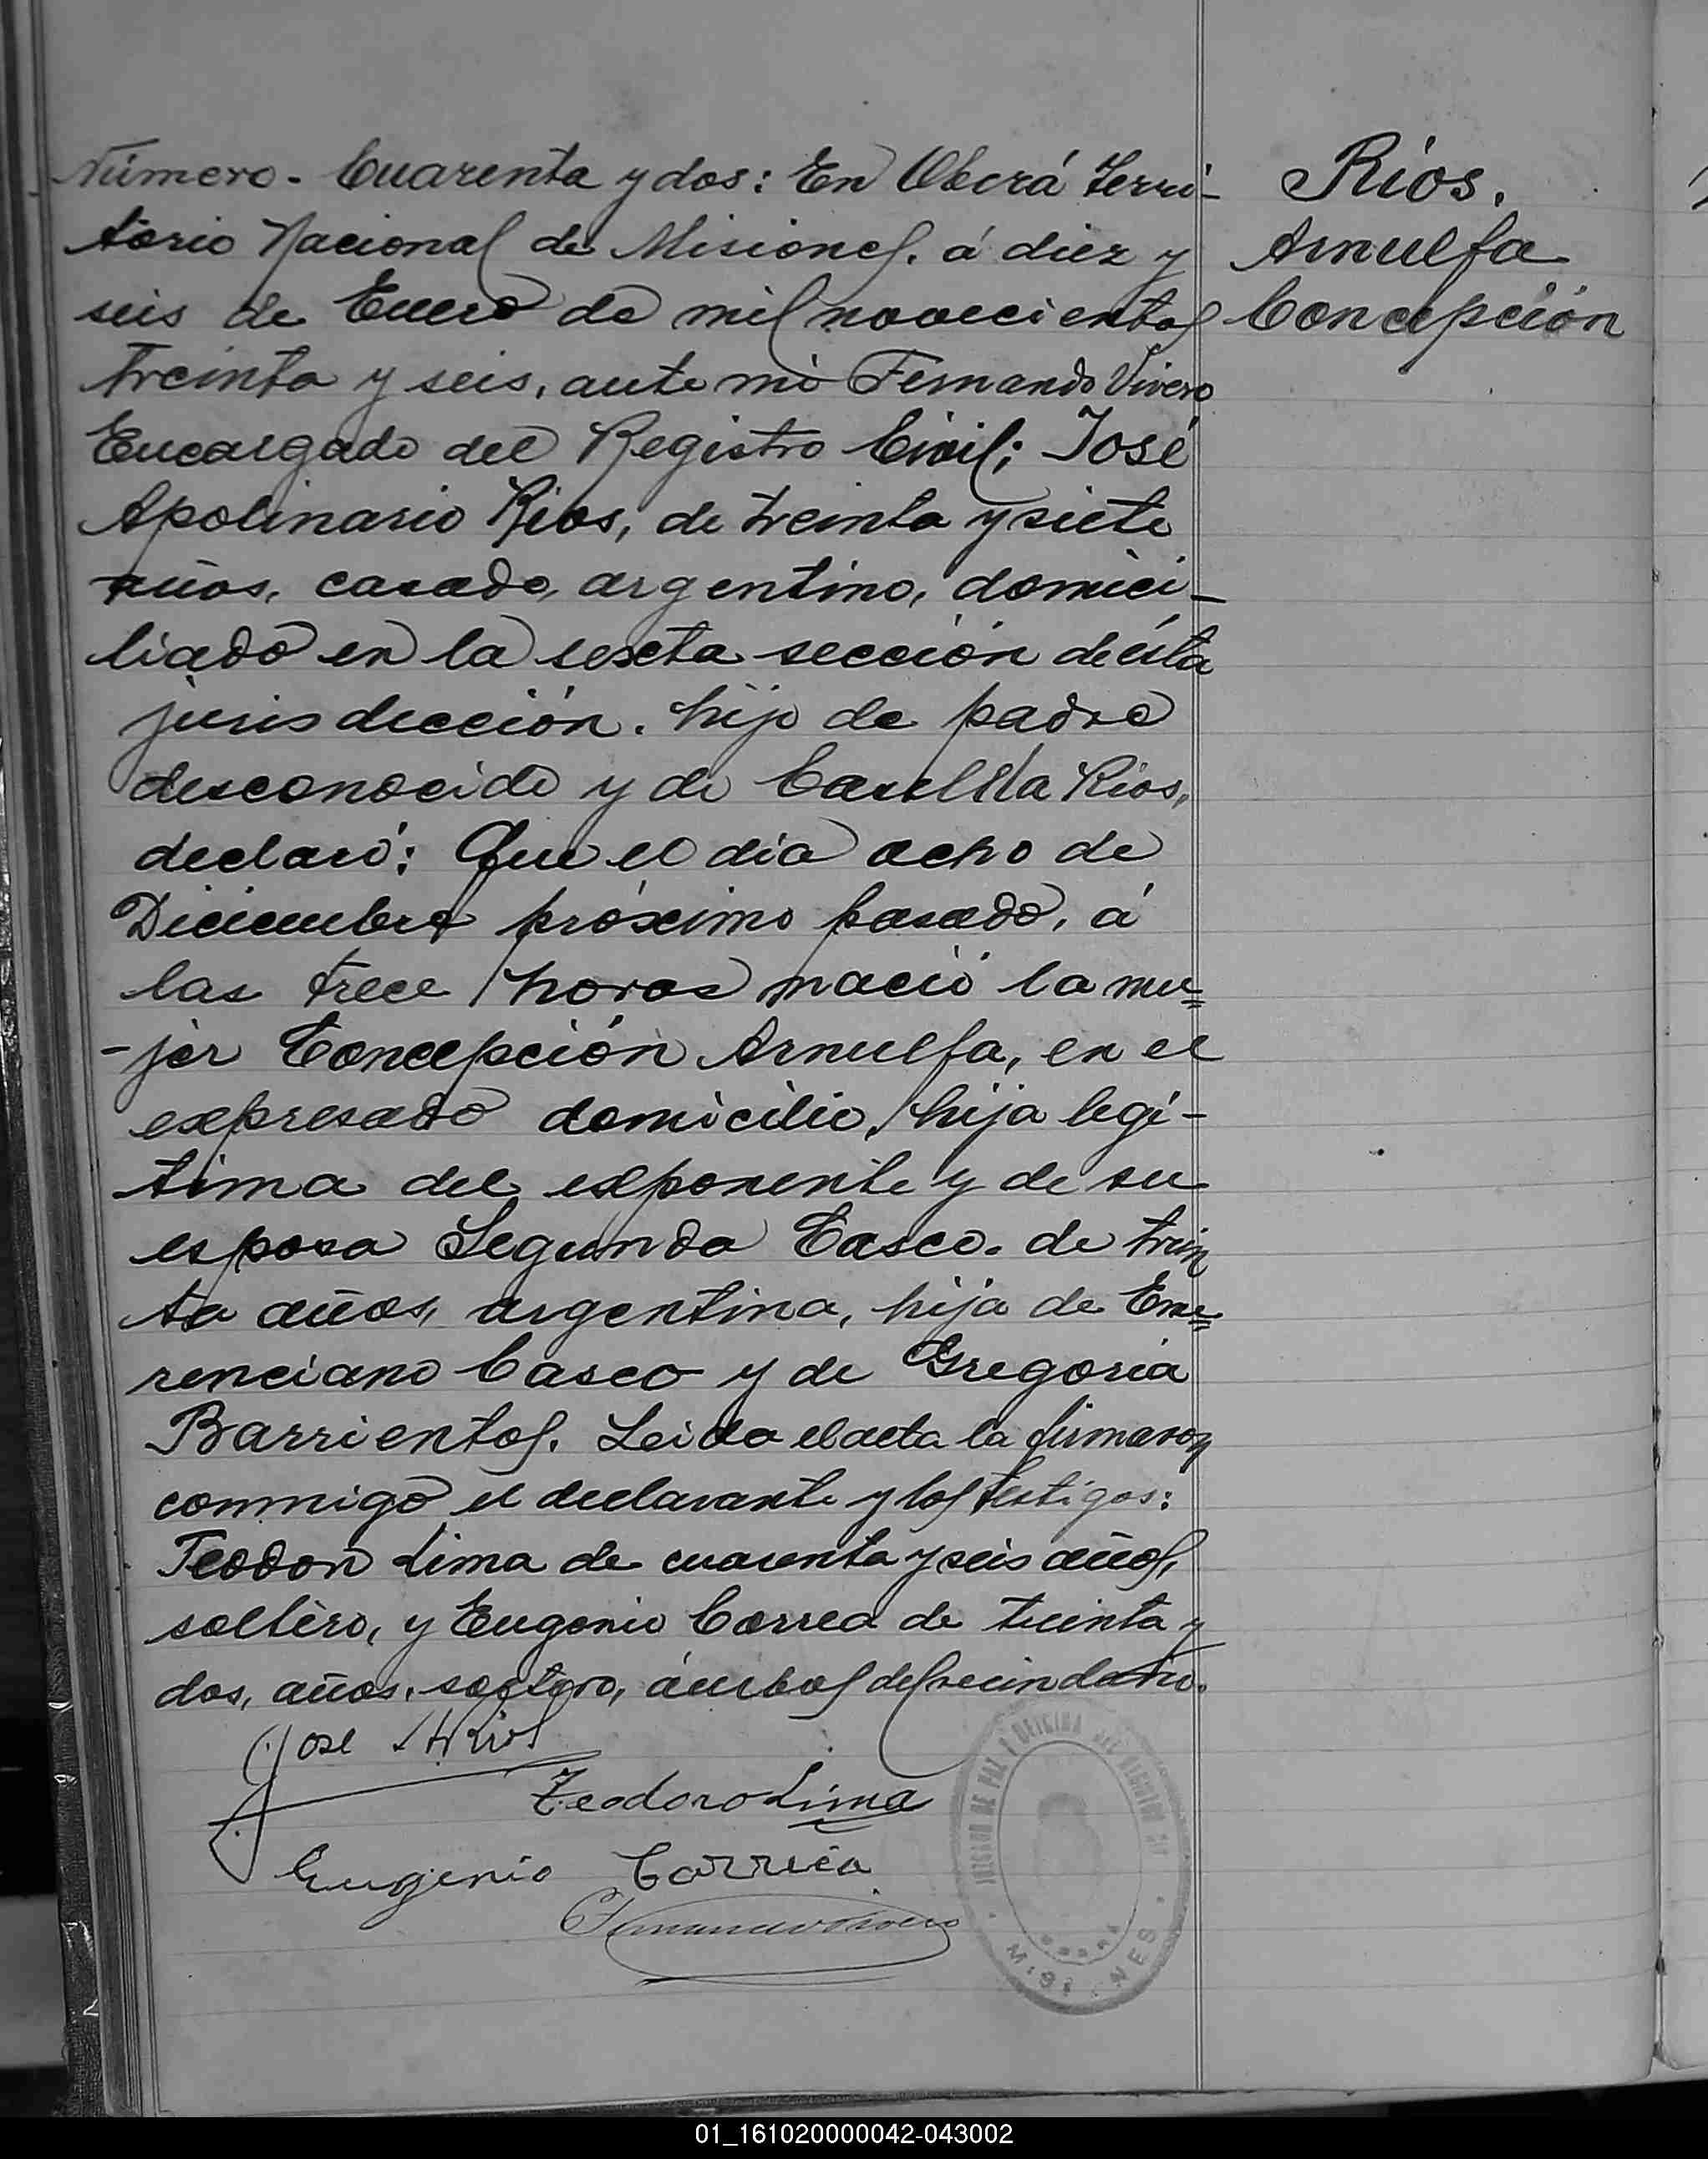 Número - Cuarenta y dos: En Oberá Terri-
torio Nacional de Misiones. á diez y
seis de Enero de mil novecientos
treinta y seis, ante mi Fernando Vivero
Encargado del Registro Civil; José
Apolinario Rios, de treinta y siete
años, casado, argentino, domici-
liado en la sexta sección de ésta
jurisdicción. hijo de padre
desconocido y de Rios,
declaró: Que el dia ocho de
Diciembre próximo pasado, á
las trece horas nació la mu=
-jer Concepción Arnulfa, en el
expresado domicilio, hija legí-
tima del exponente y de su
esposa Segunda Casco. de trein
ta años, argentina, hija de Eme=
renciano Casco y de Gregoria
Barrientos. Leida el acta la firmaron
conmigo el declarante y los testigos:
Teodoro Lima de cuarenta y seis años,
soltero, y Eugenio Correa de treinta y
dos, años, soltero, ámbos del vecindario.
Jose Rios
Teodoro Lima
Eugenio Correia
Fernando Vivero
Ríos.
Arnulfa
Concepción
JUZGADO DE PAZ Y OFICINA DEL REGISTRO
01_161020000042-043002